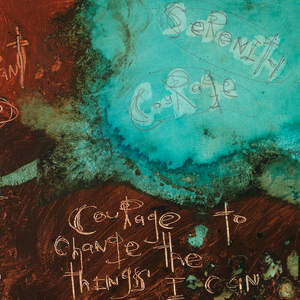 SeReniTH
CouRage
CouRage to
change the
things I can